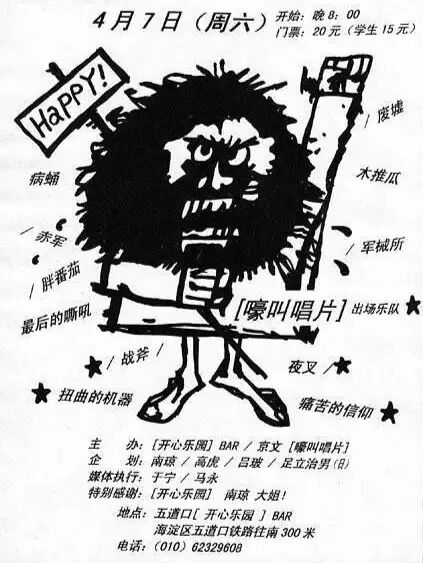 4月7日（周六）
开始：晚8：00
门票：20元（学生15元）
HaPPY!
废墟
病蛹
木推瓜
赤军
军械所
胖番茄
最后的嘶吼
[嚎叫唱片] 出场乐队
战斧
夜叉
扭曲的机器
痛苦的信仰
主　办：[开心乐园] BAR / 京文 [嚎叫唱片]
企　划：南琼 / 高虎 / 吕玻 / 足立治男(日)
媒体执行：于宁 / 马永
特别感谢：[开心乐园] 南琼 大姐！
地点：五道口[ 开心乐园 ] BAR
海淀区五道口铁路往南300米
电话：(010) 62329608